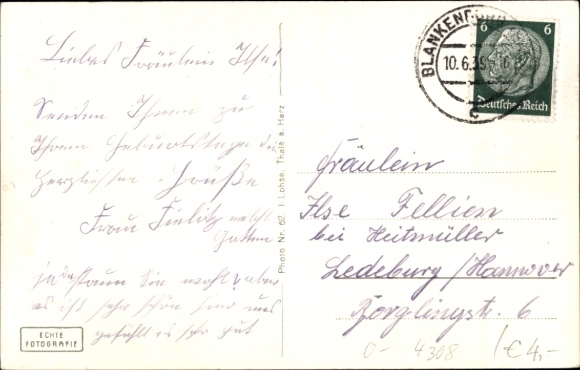 Liebes Fräulein Ilse!
Senden Ihnen zu
Ihrem Geburtstage die
herzlichsten Grüße
Frau Fielitz
Gatten
Sie wohl
es ist sehr schön hier uns
gefällt es sehr gut
ECHTE
FOTOGRAFIE
Photo Nr. 62. I. Lohse, Thale a. Harz
BLANKENBURG
10.6.39
c
6 6
Deutsches Reich
Fräulein
Ilse Fellien
bei Heitmüller
Ledeburg/Hannover
6
0- 4308 €4,-